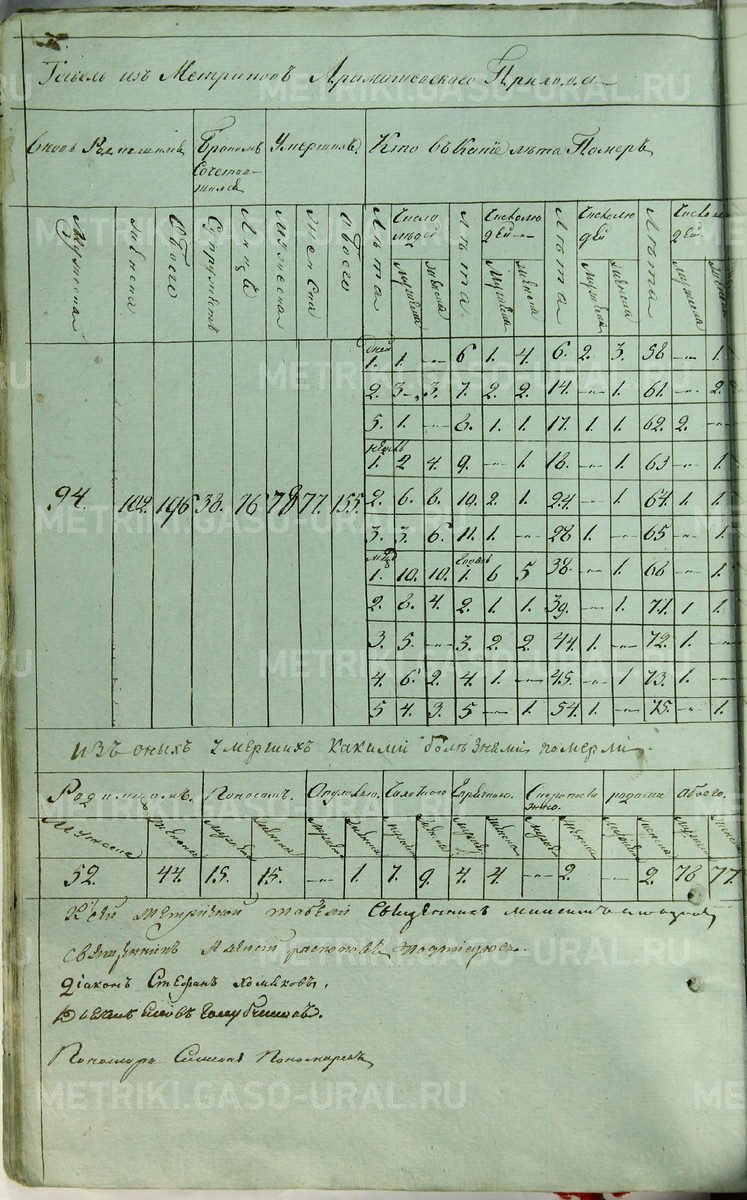 Табель изъ Метриковъ Прихода
Вновь Раждшимъ Бракомъ Умершимъ. Кто въ какïе лѣта Померъ
Сочетав-
шимся
Мужеска Женска Обоего Супружествъ Лицъ Мужеска Женска Обоего Лѣта Число людей Лѣта Число лю Лѣта Число лю Лѣта Число лю
дей дей дей
Мужеска Женска Мужеска Женска Мужеска Женска Мужеска Женска
дней
1. 1. — 6 1. 4. 6. 2. 3. 58 — 1.
2. 3. 3. 7. 2. 2. 14. — 1. 61. — 2.
5. 1. — 8. 1. 1. 17. 1. 1. 62. 2. —
недѣль
1. 2 4. 9. — 1. 18. — 1. 63 — 1.
94. 102. 196 38. 76 78 77. 155. 2. 6. 8. 10. 2. 1. 24. — 1. 64. 1. 1.
3. 3. 6. 11. 1. — 28 1. — 65 — 1.
1. 10. 10. 1. 6 5 38. — 1. 66 — 1.
2. 8. 4. 2. 1. 1. 39. — 1. 71. 1 1.
3. 5. — 3. 2. 2. 44. 1. — 72. 1. —
4. 6. 2. 4. 1. — 45. — 1 73. 1. —
5 4. 3. 5 — 1. 54. 1. — 75. — 1.
изъ оныхъ умершихъ какими болѣзнями померли.
Родимцомъ. Поносомъ. Чахоткою. Горячкою. родами Обоего.
Мужеска Женска Мужеска Женска Мужеска Женска Мужеска Женска Мужеска Женска Мужеска Женска Мужеска Женска Мужеска Женска
52. 44. 15. 15. — 1. 7. 9. 4. 4. — 2. — 2. 78 77.
Къ сей метричной табели Священникъ
священникъ подписуюсь.
Дïаконъ Стефанъ Хомяковъ.
Пономарь Симеонъ Пономаревъ
METRIKI.GASO-URAL.RU